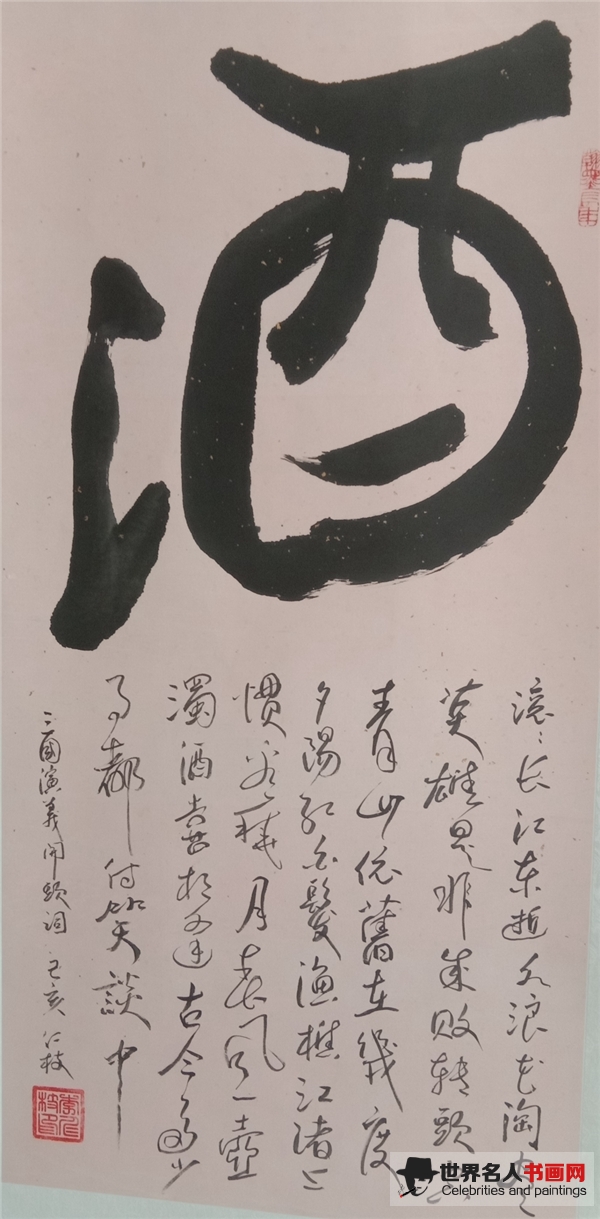 酒
滚々长江东逝水浪花淘尽
英雄是非成败转头空
青山依旧在几度
夕陽红白髮渔樵江渚上
惯看秋月春风一壶
濁酒喜相逢古今多少
事都付笑談中
三國演義開頭词 己亥 仁枝
世界名人书画网
Celebrities and paintings